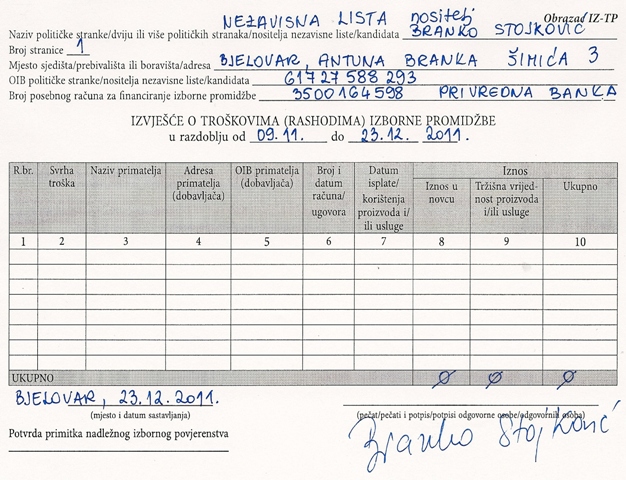 NEZAVISNA LISTA nositelj Obrazac IZ-TP
Naziv političke stranke/dviju ili više političkih stranaka/nositelja nezavisne liste/kandidata BRANKO STOJKOVIĆ
Broj stranice 1
Mjesto sjedišta/prebivališta ili boravišta/adresa BJELOVAR, ANTUNA BRANKA ŠIMIĆA 3
OIB političke stranke/nositelja nezavisne liste/kandidata 61727588293
Broj posebnog računa za financiranje izborne promidžbe 3500164598 PRIVREDNA BANKA
IZVJEŠĆE O TROŠKOVIMA (RASHODIMA) IZBORNE PROMIDŽBE
u razdoblju od 09.11. do 23.12. 2011.
R.br. Svrha troška Naziv primatelja Adresa primatelja (dobavljača) OIB primatelja (dobavljača) Broj i datum računa/ugovora Datum isplate/korištenja proizvoda i/ili usluge Iznos
Iznos u novcu Tržišna vrijednost proizvoda i/ili usluge Ukupno
1 2 3 4 5 6 7 8 9 10
UKUPNO Ø Ø Ø
BJELOVAR, 23.12.2011.
(mjesto i datum sastavljanja) (pečat/pečati i potpis/potpisi odgovorne osobe/odgovornih osoba)
Potvrda primitka nadležnog izbornog povjerenstva Branko Stojković